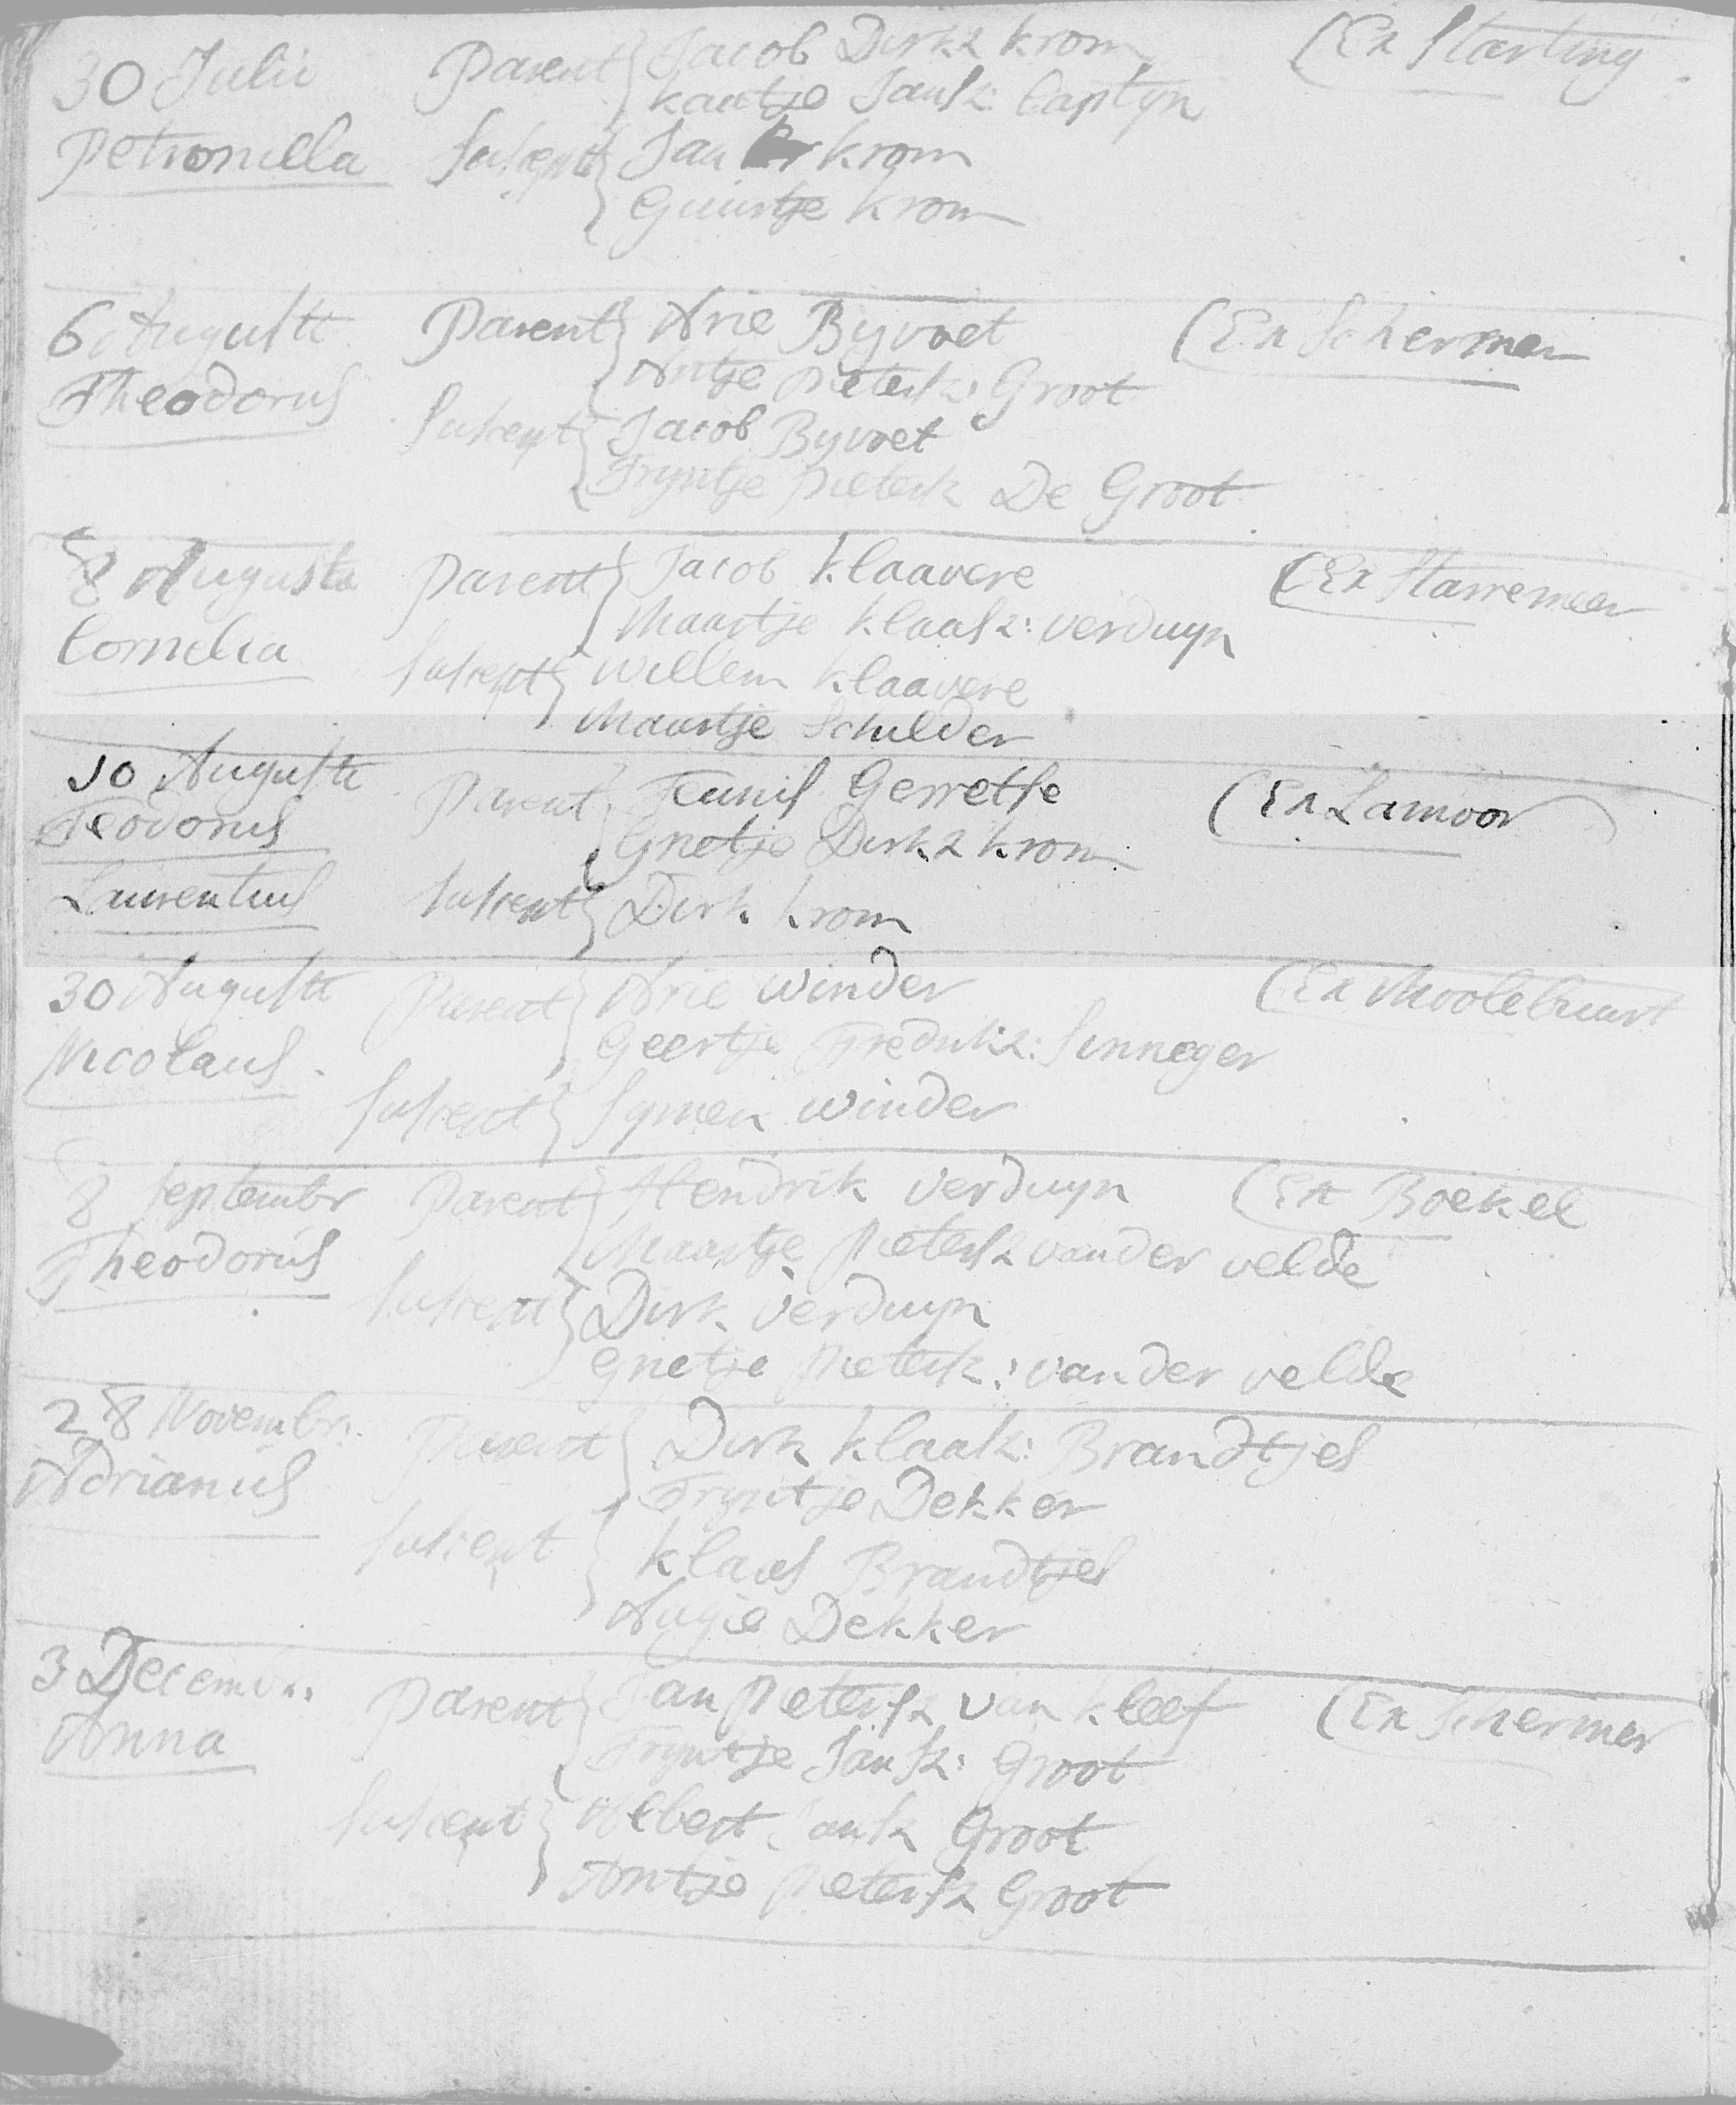 30 Julii Parent Jacob Dirkz krom (Ex Starting
kaatje Jansz: Captyn
Petronilla suscept Jan krom
Guurtje krom
6 Augusti Parent Arie Byvoet (Ex Schermer
Antje Pietersz: Groot
Theodorus
suscept Jacob Byvoet
Tryntje Pietersz De Groot
8 Augusti Parent Jacob klaavere (Ex Starremeer
Maartje klaasz: verduyn
Cornelia
suscept willem klaavere
Maartje Schilder
10 Augusti Parent Teunis Gerretse (Ex Lamoor
Teodorus Grietje Dirkz krom
Laurentius suscept Dirk krom
30 Augusti Parent Arie winder (Ex Moolebuurt
Geertje Fredrikz: Sinneger
Nicolaus
suscept Symen winder
8 Septembr Parent Hendrik verduyn (Ex Boekel
Maartje Pietersz vander velde
Theodorus
suscept Dirk verduyn
Grietje Pietersz: vander velde
28 Novembr: Parent Dirk klaasz: Brandtjes
Adrianus Tryntje Dekker
suscept klaas Brandtjes
Aagie Dekker
3 Decembr: Parent Jan Pietersz van kleef (Ex Schermer
Anna Tryntje Jansz: Groot
suscept Albert Jansz Groot
Antje Pietersz Groot